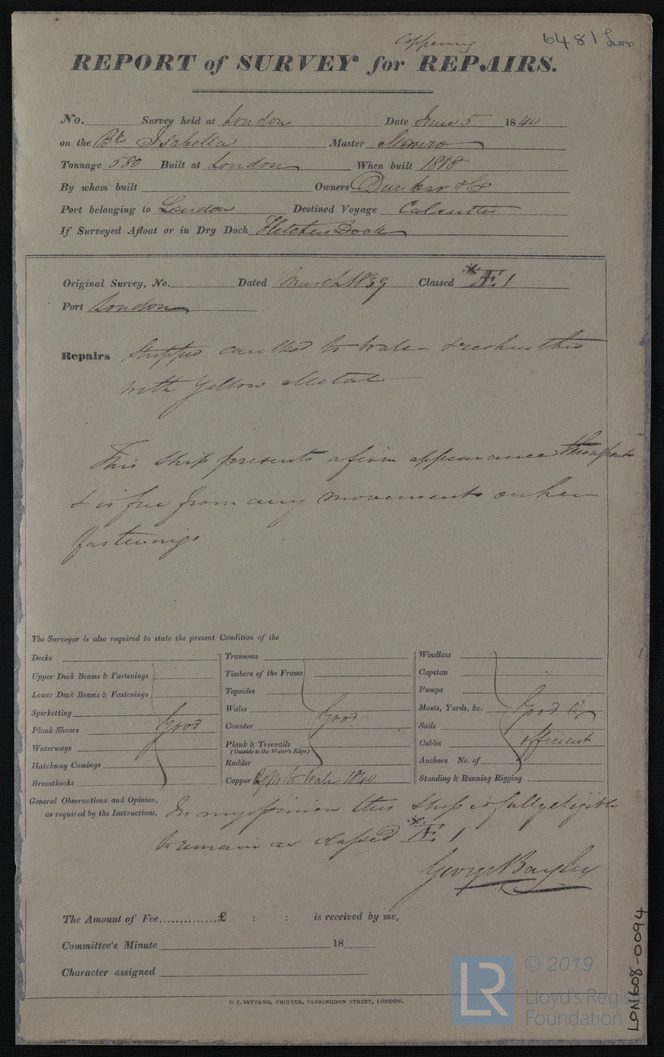 6481 Lon
Coppering
REPORT of SURVEY for REPAIRS.
No. Survey held at London Date June 5 1840
on the Bk Isabella Master Munro
Tonnage 580 Built at London When built 1818
By whom built Owners Dunbar & Co
Port belonging to London Destined Voyage Calcutta
If Surveyed Afloat or in Dry Dock Fletchers Dock
Original Survey, No. Dated March 1839 Classed *Æ 1
Port London
Repairs Stripped caulked to Wale &
with Yellow Metal
This Ship presents a firm appearance throughout
& is free from any movements on her
fastenings
The Surveyor is also required to state the present Condition of the
Decks
Upper Deck Beams & Fastenings
Lower Deck Beams & Fastenings
Spirketting
Plank Shears
Waterways
Hatchway Comings
Breasthooks
Good
Transoms
Timbers of the Frame
Topsides
Wales
Counter
Plank & Treenails
(Outside to the Water's Edge)
Rudder
Good
Copper to Wales 1840
Windlass
Capstan
Pumps
Masts, Yards, &c.
Sails
Cables
Anchors No. of
Standing & Running Rigging
Good &
efficient
General Observations and Opinion, In my opinion this Ship is fully eligible
as required by the Instructions, to remain as classed *Æ 1
George Bayley
The Amount of Fee..............£ : : is received by me,
Committee's Minute 18
Character assigned
C. F. SEYFANG, PRINTER, FARRINGDON STREET, LONDON.
LR © 2019
Lloyd's Register
Foundation
LON608-0094